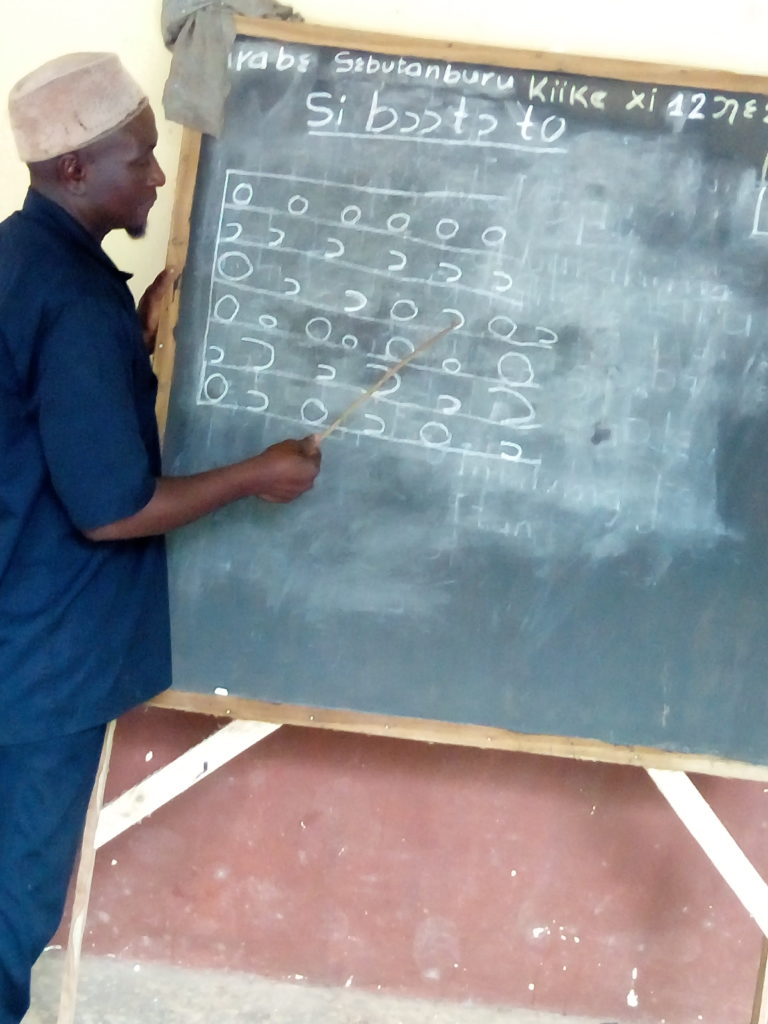 rabɛ Sɛbutanburu Kiike xi 12 ɲɛ
Si bɔɔtɔ to
o o o o o o
ɔ ɔ ɔ ɔ ɔ ɔ
o ɔ ɔ o ɔ o ɔ
O o O o O o O
ɔ Ɔ ɔ Ɔ ɔ Ɔ
o ɔ o ɔ o ɔ